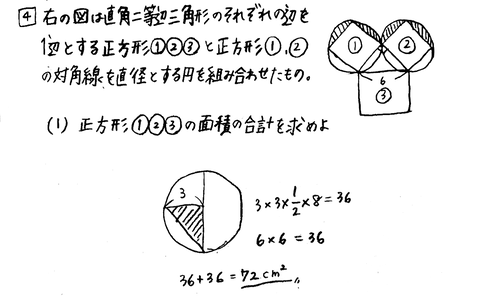 4 右の図は直角二等辺三角形のそれぞれの辺を
1辺とする正方形①②③と正方形①、②
の対角線を直径とする円を組み合わせたもの。
① ② 6 ③
(1) 正方形①②③の面積の合計を求めよ
3
3×3×1/2×8=36
6×6=36
36+36=72cm²